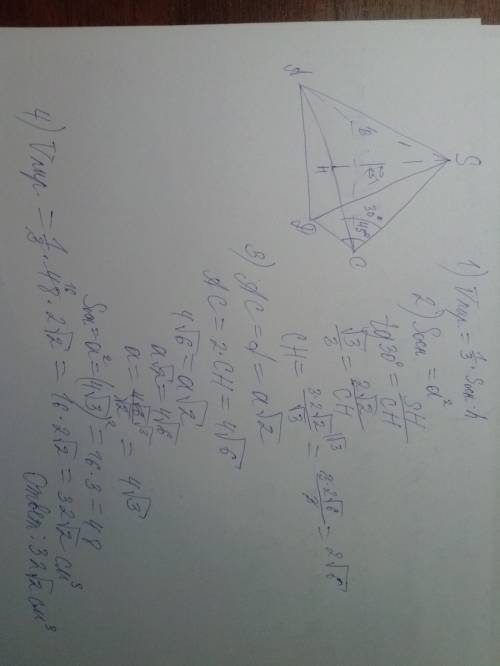 S
A
B
D
C
H
30°
45°
1) Vпир. = 1/3 · Sосн. h
2) Sосн = a²
tg 30° = SH/CH
√3/3 = 2√2/CH
CH = 3·2√2 √3/√3 = 3·2√6/3 = 2√6
3) AC = d = a√2
AC = 2·CH = 4√6
4√6 = a√2
a√2 = 4√6
a = 4√6/√2 = 4√3
Sосн = a² = (4√3)² = 16·3 = 48
4) Vпир. = 1/3 · 48 16 · 2√2 = 16·2√2 = 32√2 см³
Ответ: 32√2 см³